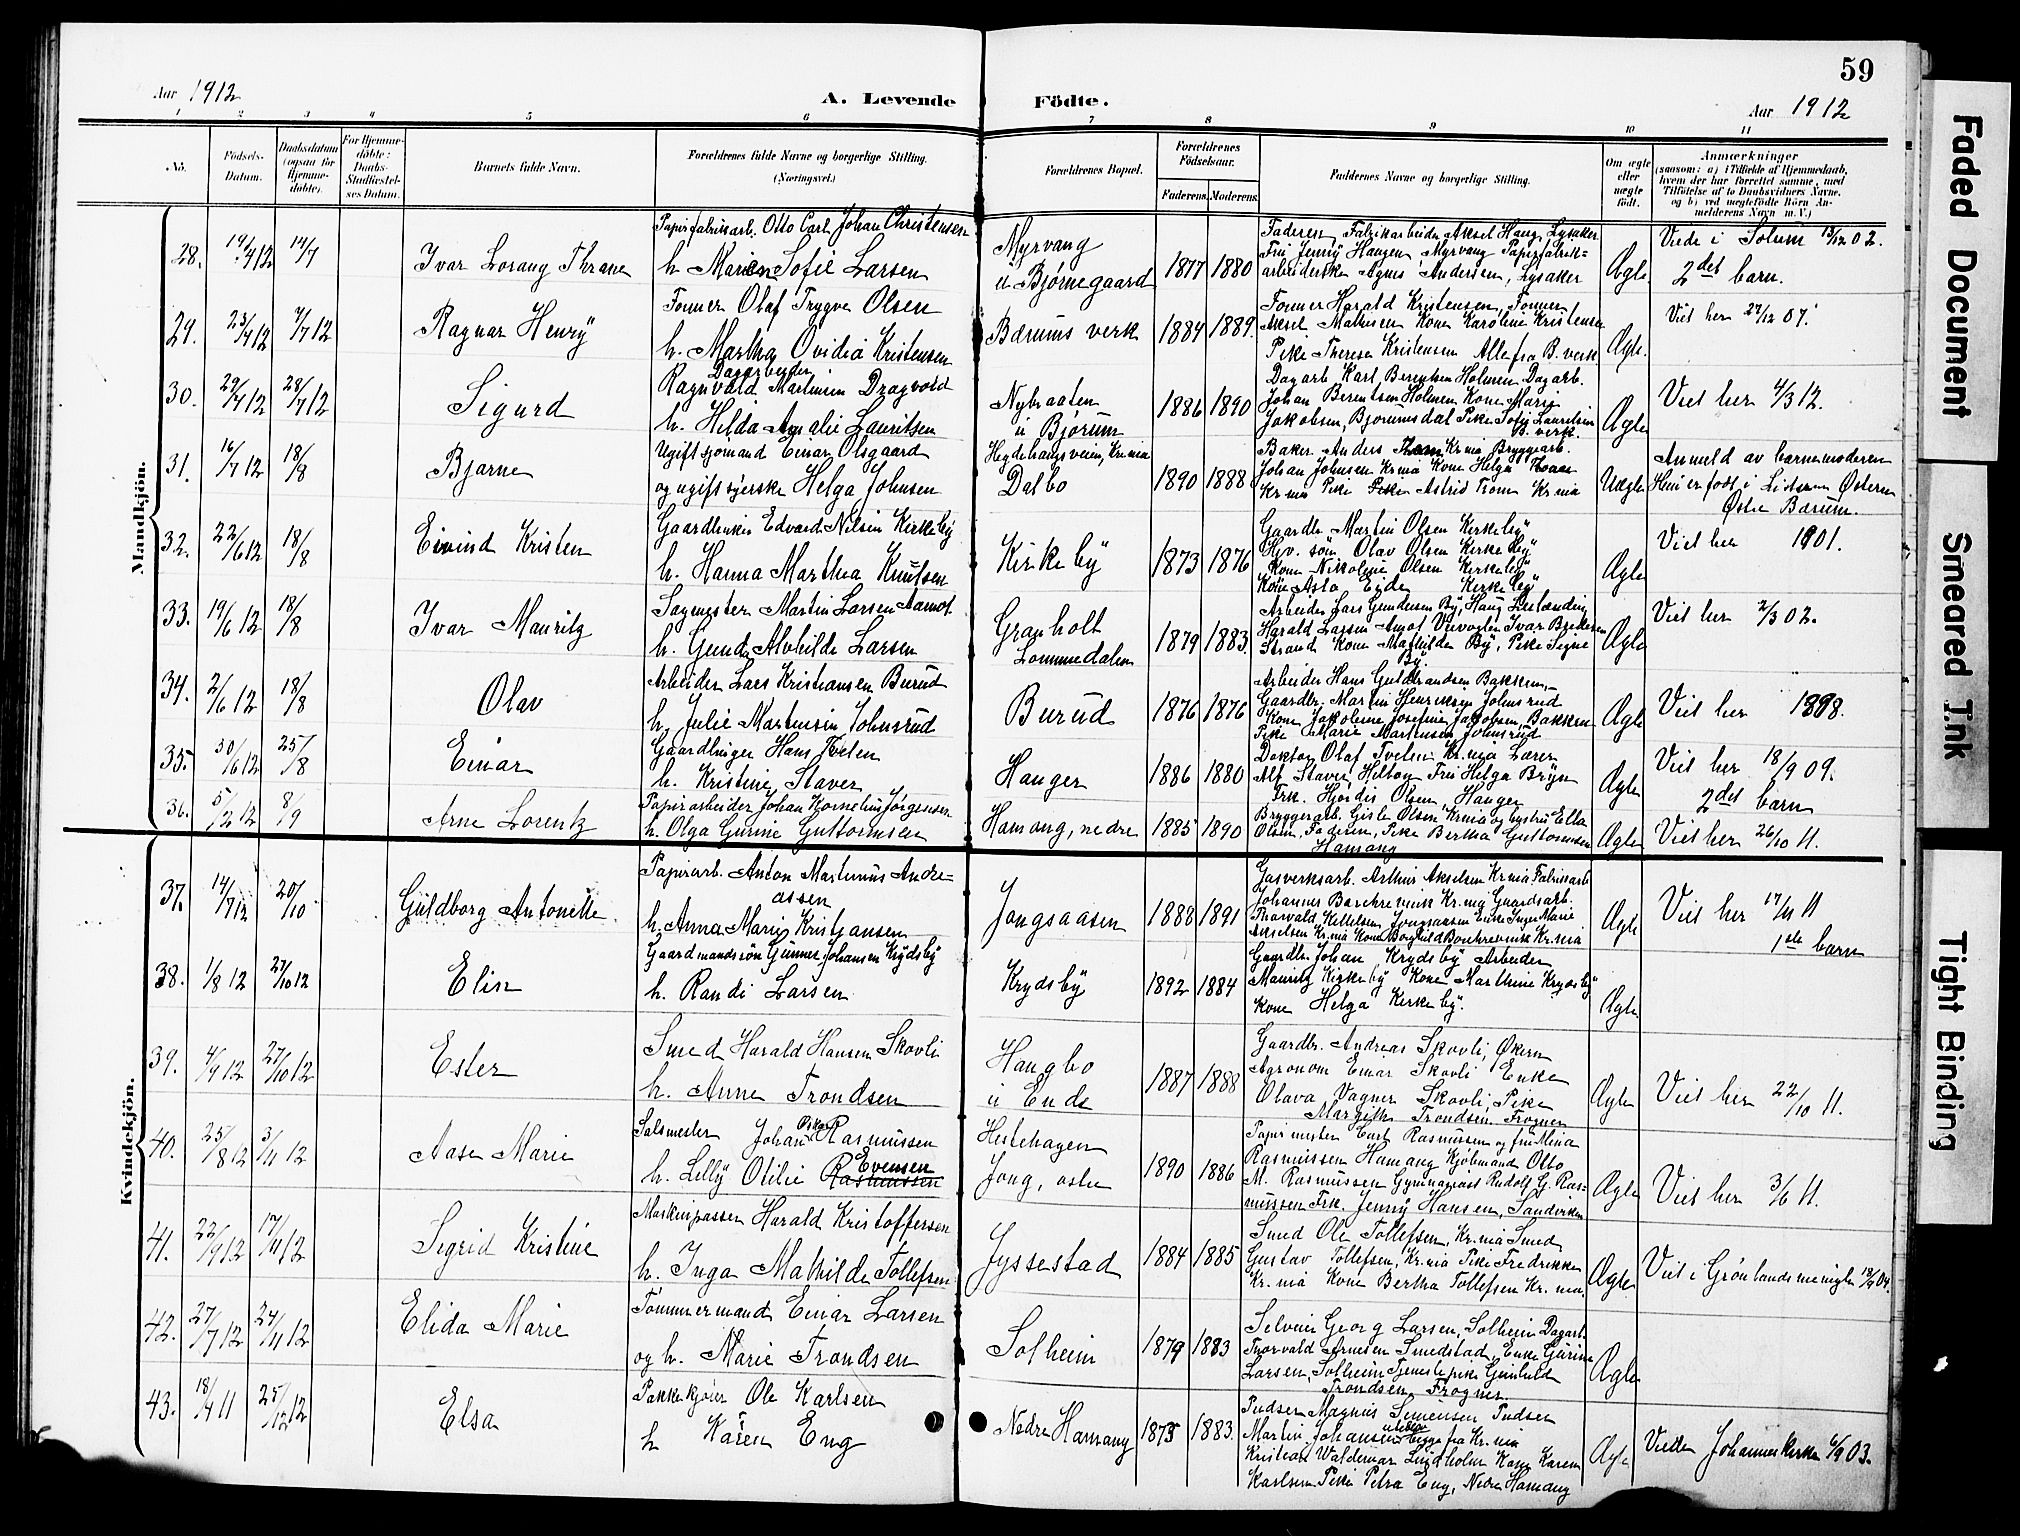 59
Aar 1912
A. Levende Födte.
Aar 1912
1 2 3 4 5 6 7 8 9 10 11
No.
Födsels-Datum.
Daabsdatum (ogsaa for Hjemmedöbte).
For Hjemmedöbte: Daabs-Stadfæstelses Datum.
Barnets fulde Navn.
Forældrenes fulde Navne og borgerlige Stilling. (Næringsvei.)
Forældrenes Bopæl.
Forældrenes Födselsaar.
Faderens. Moderens.
Faddernes Navne og borgerlige Stilling.
Om ægte eller uægte födt.
Anmærkninger (saasom: a) i Tilfælde af Hjemmedaab, hvem der har forrettet samme, med Tilföielse af to Daabsvidners Navne, og b) ved uegtefödte Börn Anmelderens Navn m. V.)
Mandkjön.
28. 14/7 Ivar Lorang Thrane
Papirfabrikarb. Otto Carl Johan Christensen
h. Marien Sofie Larsen
Myrvang
u Bjørnegaard
1877 1880
Faderen Fabrikarbeider Aksel Haug Lysaker
Fru Jenny Haugen Myrvang Papirfabrik-
arbeiderske Agnes Andersen, Lysaker
Ægte
Viede i Solum 13/12 02.
2det barn.
29. 23/4 12 7/7 12 Ragnar Henrÿ
Former Olaf Trygve Olsen
h. Martha Ovidia Kristensen
Bærums verk
1884 1889.
Former Harald Kristensen, Former
Aksel Mathisen Kone Karoline Kristensen
Pike Therese Kristensen Alle fra B. verk.
Ægte.
Viet her 27/12 07.
30. 29/4 12 28/7 12 Sigurd
Dagarbeider
Ragnvald Martinius Dragvold
h. Hilda Amalie Lauritsen
Nybraaten
u Bjørum
1886 1890
Dagarb. Karl Berentsen Holmen Dagarb.
Johan Berentsen Holmen Kone Marie
Jakobsen, Bjørumsdal Pike Sofie Lauritsen
B. verk.
Ægte
Viet her 4/3 12.
31. 16/7 12 18/8 Bjarne
Ugift sjømand Einar Olsgaard
og ugift syerske Helga Johnsen
Hegdehaugsveien, Kr.nia
Dalbo
1890 1888
Baker Anders Kr.nia Bryggeriarb.
Johan Johnsen Kr.nia Kone Helga
Kr.nia Pike Astrid Kr.nia
Uægte
Anmeld av barnemoderen
Øst re Bærum.
32. 22/6 12 18/8 Eivind Kristen
Gaardbruker Edvard Nilsen Kirkebÿ
h. Hanna Marthea Knutsen
Kirkebÿ
1873 1876
Gaardbr. Martin Olsen Kirkebÿ
Olav Olsen Kirkebÿ
Kone Nikoline Olsen Kirkebÿ
Kone Asta Eide Kirkebÿ
Ægte
Viet her 1901.
33. 19/6 12 18/8 Ivar Mauritz
Sagmester Martin Larsen Aamot
h. Gunda Alvhilde Larsen
Granholt
Lommedalen
1879 1883.
Arbeider Lars Gundersen Bÿ,
Harald Larsen Amot Ivar
Strand Kone Mathilde Bÿ, Pike Signe
Bÿ.
Ægte
Viet her 2/3 02.
34. 2/6 12 18/8 Olav
Arbeider Lars Kristiansen Burud
h. Julie Martinsen Johnsrud
Burud
1876 1876
Arbeider Hans Guldbrandsen Bakken,
Gaardbr. Martin Henriksen Johnsrud
Kone Jakobine Josefine Jakobsen, Bakken
Pike Marie Martinsen Johnsrud
Ægte
Viet her 1898.
35. 30/6 12 25/8 Einar
Gaardbruger Hans Tveten
h. Kristine Staver
Hauger
1886 1880
Doktor Olaf Tveten Kr.nia Lærer
Alf Staver Hilton Fru Helga Brÿn
Frk. Hjørdis Olsen Hauger
Ægte
Viet her 18/9 09.
2det barn
36. 5/2 12 8/9 Arne Lorentz
Papirarbeider Johan Kornelius Jørgensen
h. Olga Gurine Guttormsen
Hamang, nedre
1885 1890
Bryggeriarb. Gisle Olsen Kr.nia og hustru Ella
Olsen, Faderen, Pike Bertha Guttormsen
Hamang
Ægte
Viet her 26/10 11.
Kvindekjön.
37. 14/7 12 20/10 Guldborg Antonette.
Papirarb. Anton Martinius Andre=
assen
h. Anna Marie Kristjansen
Jongsaasen
1888 1891
Gasverksarb. Arthur Akselsen Kr.nia Fabrikarb
Johannes Kr.nia Gaardsarb.
Thorvald Kittelsen, Jongsaasen Enke Inger Marie
Akselsen Kr.nia Kone Borghild Kr.nia
Ægte
Viet her 17/11 11
1ste barn
38. 1/8 12 27/10 12 Elin
Gaardmandssøn Gunnar Johansen Krydsbÿ
h. Randi Larsen
Krydsbÿ
1892 1884
Gaardbr. Johan Krydsbÿ Arbeider
Mauritz Kirkebÿ Kone Marthine Krydsbÿ
Kone Helga Kirkebÿ.
Ægte
39. 4/9 12 27/10 12 Ester
Smed Harald Hansen Skovli
h. Anne Trondsen
Haugbo
u Ende
1887 1888
Gaardbr. Andreas Skovli, Økern
Agronom Einar Skovli Enke
Olava Vagner Skovli, Pike
Margith Trondsen, Frogner
Ægte
Viet her 22/10 11.
40. 25/8 12 3/11 12 Aase Marie
Salsmester Johan Oskar Rasmussen
h. Lilly Otilie Rasmussen Evensen
Hestehagen
Jong, østre
1890 1886
Papirmester Carl Rasmussen og fru Mina
Rasmussen Hamang Kjøbmand Otto
M. Rasmussen Gymnasiast Rudolf G. Ras=
mussen Frk. Jenny Hansen, Sandviken
Ægte
Viet her 3/6 11.
41. 22/9 12 17/11 12 Sigrid Kristine
Maskinpasser Harald Kristoffersen
h. Inga Mathilde Tollefsen
Jyssestad
1884 1885
Smed Ole Tollefsen, Kr.nia Smed
Gustav Tollefsen, Kr.nia Pike Fredrikke
Kr.nia Kone Bertha Tollefsen Kr.nia
Ægte
Viet i Grønlands menighe 04.
42. 27/7 12 24/11 12 Elida Marie
Tømmermand Einar Larsen
og h. Marie Trondsen
Solheim
1879 1883
Georg Larsen, Solheim Dagarb.
Thorvald Arnesen Smedstad, Enke Gurine
Larsen, Solheim Tjenestepike Gunhild
Trondsen Frogner
Ægte
43. 18/9 11 25/12 12 Elsa
Pakkekjører Ole Karlsen
h Karen Eng
Nedre Hamang
1875 1883.
Pudser Magnus Simensen Pudser
Martin Johansen begge fra Kr.nia
Kristian Waldemar Lindholm Kone Karen
Karlsen Pike Petra Eng, Nedre Hamang
Ægte
Viet i Johannes kirke 6/9 03.
Faded Document
Smeared Ink
Tight Binding